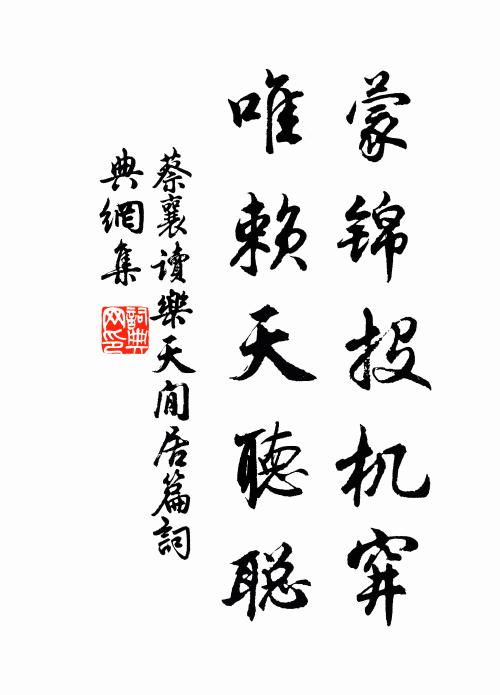 蒙锦投机穽
唯赖天聽聪
蔡襄讀樂天閒居篇詞
典網集
詞典
网印